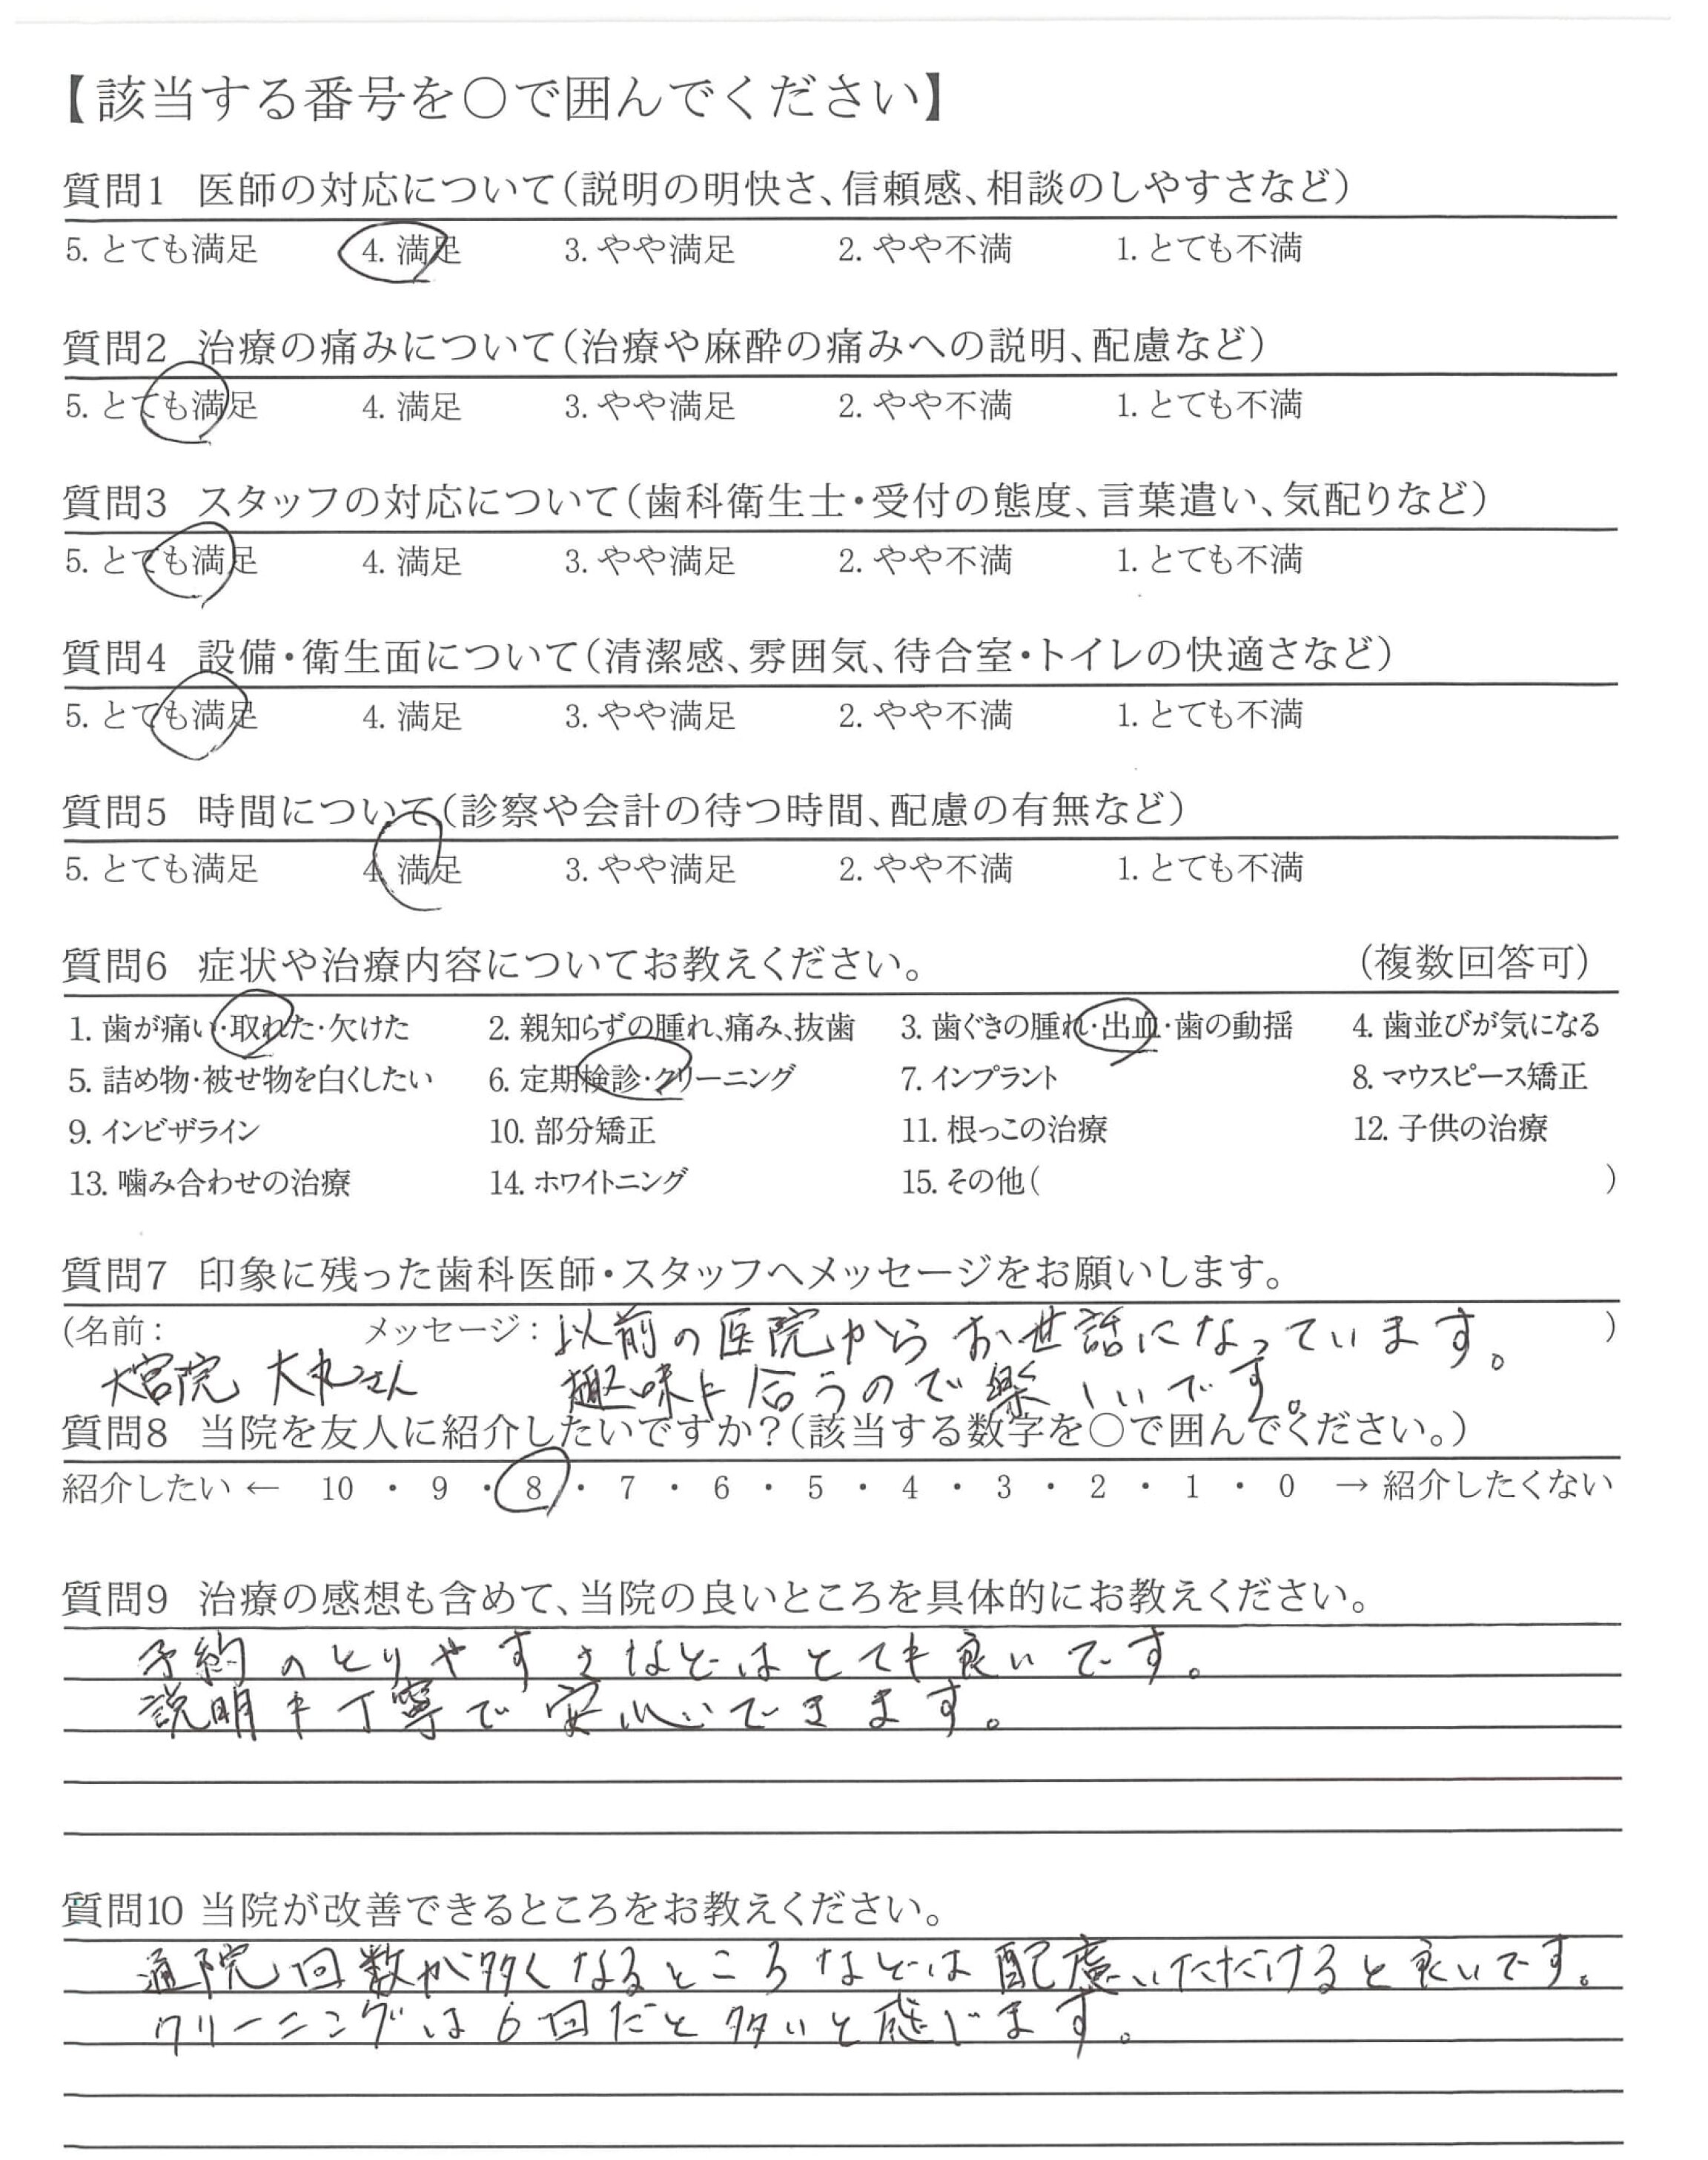 【該当する番号を〇で囲んでください】
質問1 医師の対応について(説明の明快さ、信頼感、相談のしやすさなど)
5. とても満足 4. 満足 3. やや満足 2. やや不満 1. とても不満
質問2 治療の痛みについて(治療や麻酔の痛みへの説明、配慮など)
5. とても満足 4. 満足 3. やや満足 2. やや不満 1. とても不満
質問3 スタッフの対応について(歯科衛生士・受付の態度、言葉遣い、気配りなど)
5. とても満足 4. 満足 3. やや満足 2. やや不満 1. とても不満
質問4 設備・衛生面について(清潔感、雰囲気、待合室・トイレの快適さなど)
5. とても満足 4. 満足 3. やや満足 2. やや不満 1. とても不満
質問5 時間について(診察や会計の待つ時間、配慮の有無など)
5. とても満足 4. 満足 3. やや満足 2. やや不満 1. とても不満
質問6 症状や治療内容についてお教えください。 (複数回答可)
1. 歯が痛い・取れた・欠けた 2. 親知らずの腫れ、痛み、抜歯 3. 歯ぐきの腫れ・出血・歯の動揺 4. 歯並びが気になる
5. 詰め物・被せ物を白くしたい 6. 定期検診・クリーニング 7. インプラント 8. マウスピース矯正
9. インビザライン 10. 部分矯正 11. 根っこの治療 12. 子供の治療
13. 噛み合わせの治療 14. ホワイトニング 15. その他( )
質問7 印象に残った歯科医師・スタッフへメッセージをお願いします。
(名前: メッセージ: 以前の医院からお世話になっています。 )
大宮院 大丸さん 趣味も合うので楽しいです。
質問8 当院を友人に紹介したいですか?(該当する数字を〇で囲んでください。)
紹介したい ← 10 ・ 9 ・ 8 ・ 7 ・ 6 ・ 5 ・ 4 ・ 3 ・ 2 ・ 1 ・ 0 → 紹介したくない
質問9 治療の感想も含めて、当院の良いところを具体的にお教えください。
予約のとりやすさなどはとても良いです。
説明も丁寧で安心できます。
質問10 当院が改善できるところをお教えください。
通院回数が多くなるところなどは配慮いただけると良いです。
クリーニングは6回だと多いと感じます。